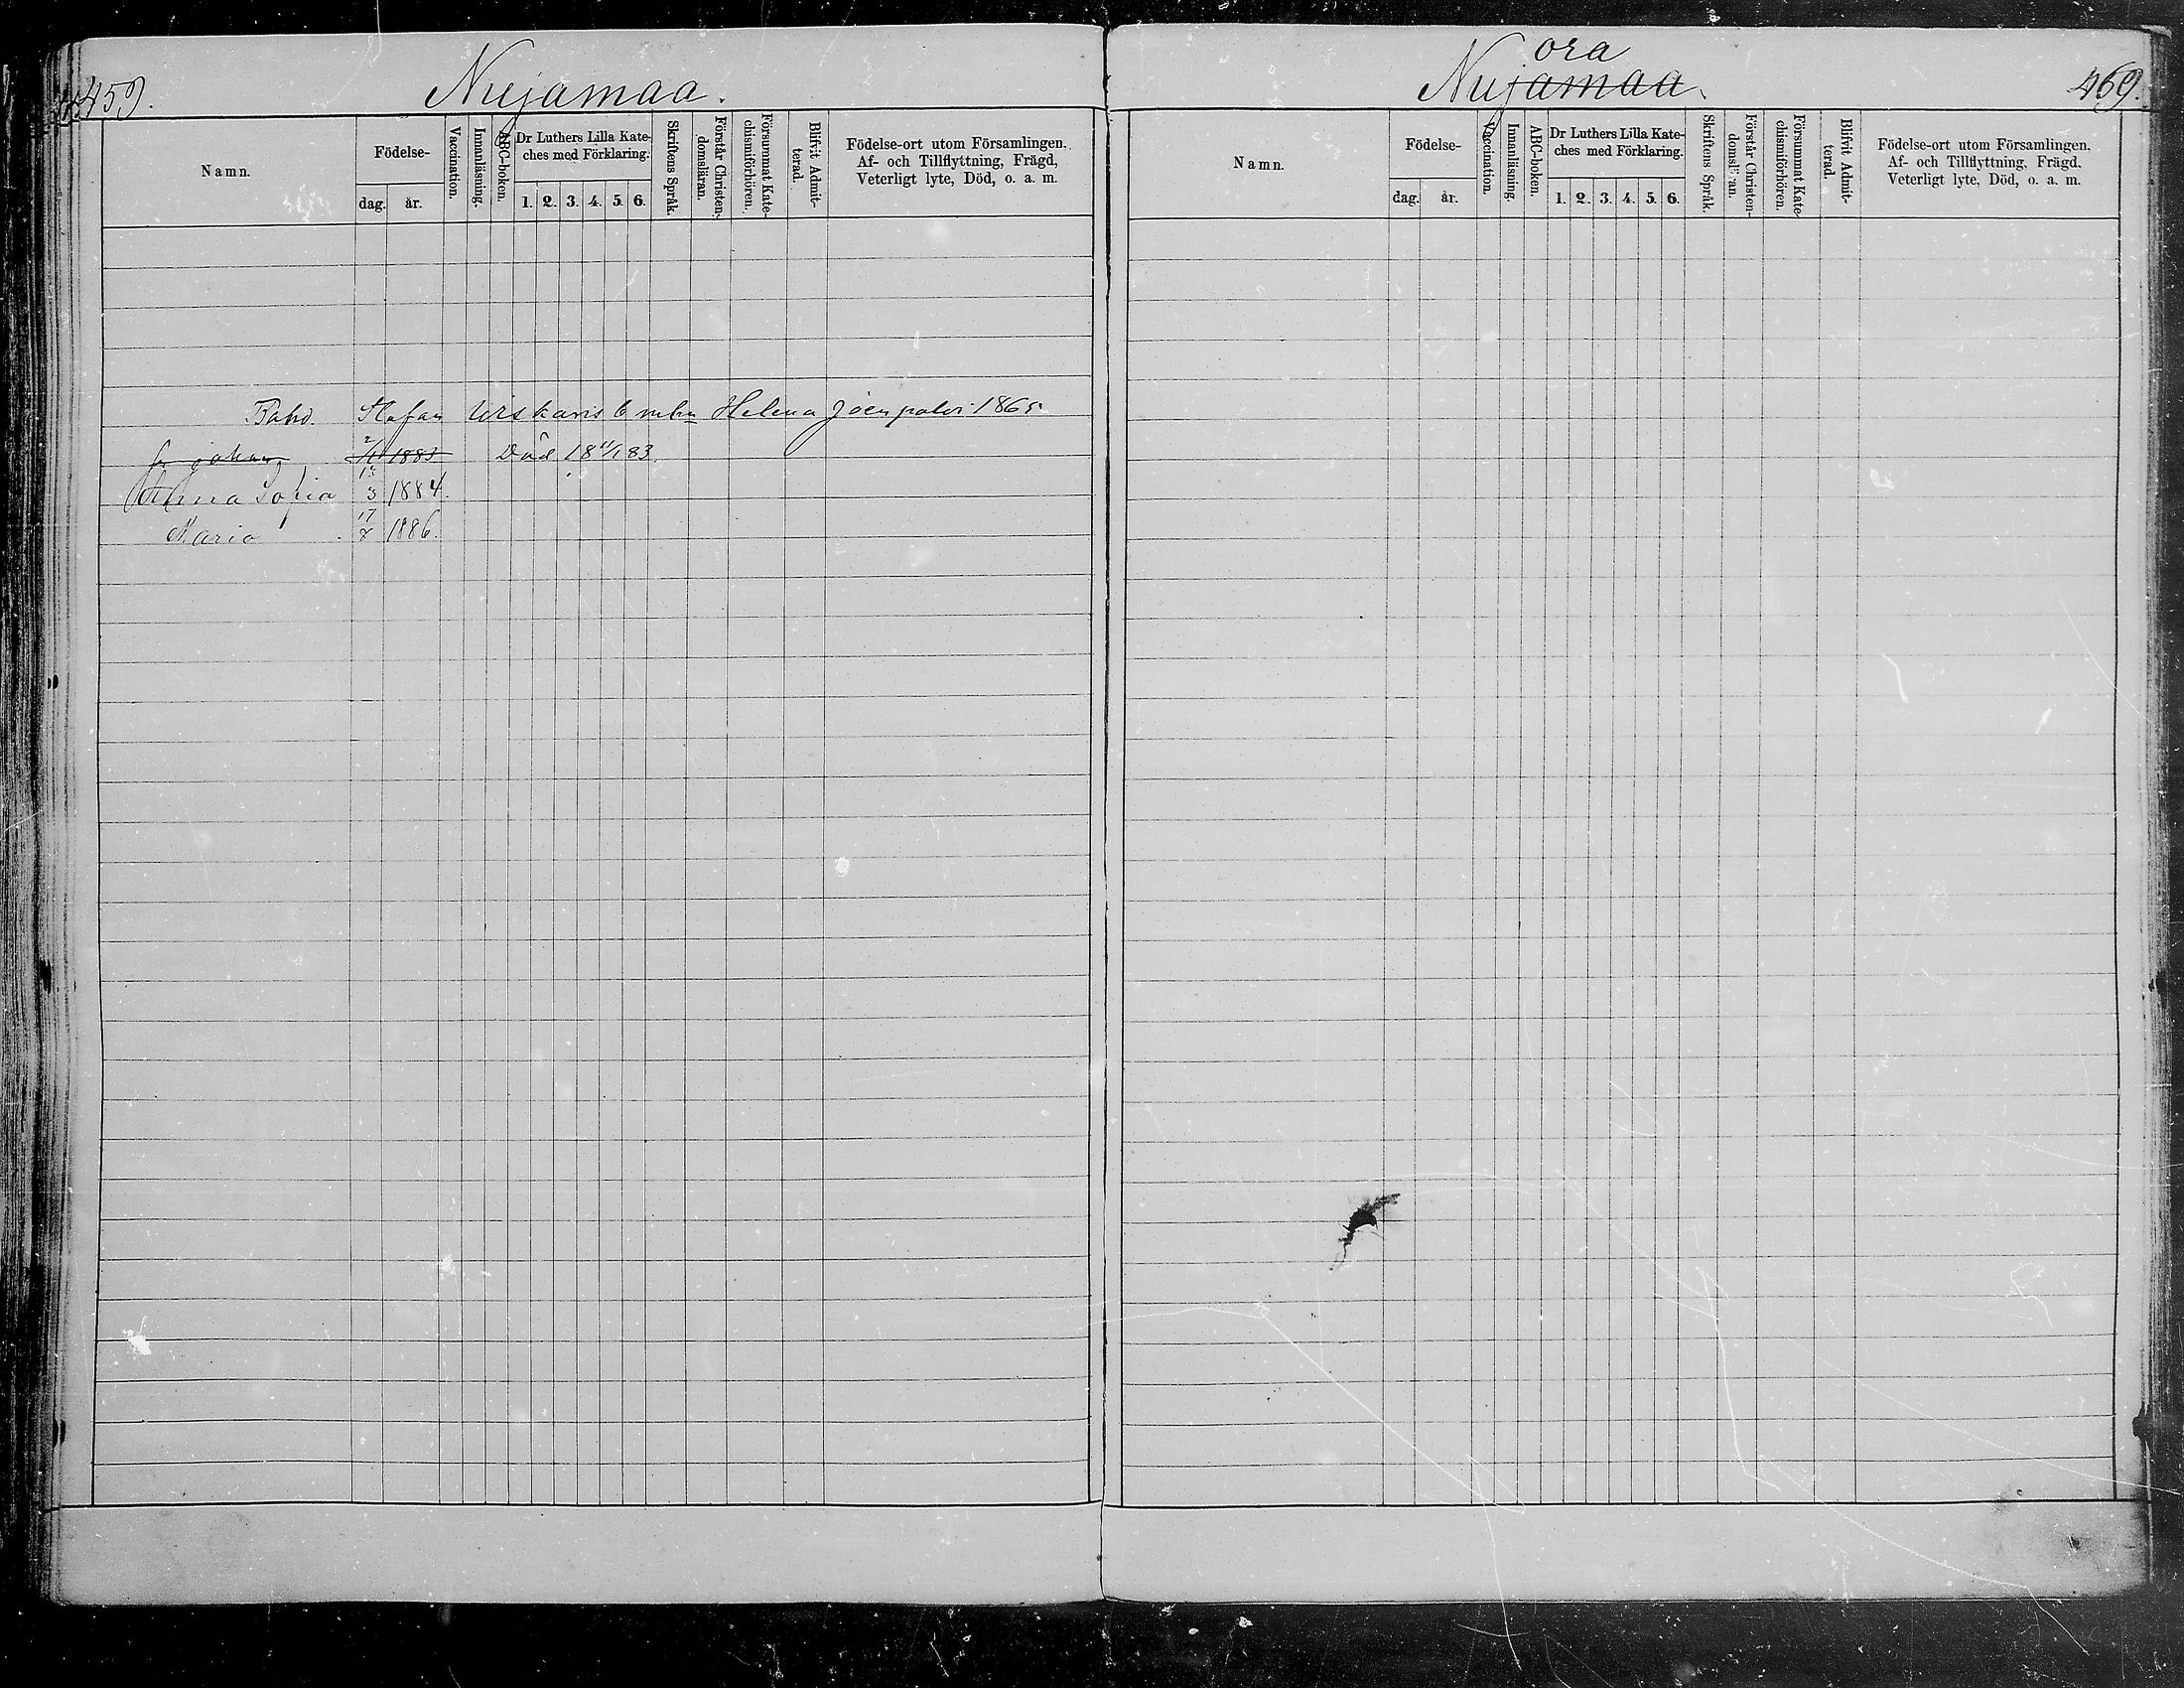 459.
Nuijamaa.
Namn.
Födelse-
dag.
år.
Vaccination.
Innanläsning.
ABC-boken.
Dr Luthers Lilla Kate-
ches med Förklaring.
1. 2. 3. 4. 5. 6.
Skriftens Språk.
Förstår Christen-
domsläran.
Försummat Kate-
chismiförhören.
Blifvit Admit-
terad.
Födelse-ort utom Församlingen.
Af- och Tillflyttning, Frägd,
Veterligt lyte, Död, o. a. m.
Stefan Helena 1865
Johan 2/11 1883 Död 18 11/1 83.
Sofia 3 1884.
Maria 17/7 1886.
ora
Nuijamaa.
469.
Namn.
Födelse-
dag.
år.
Vaccination.
Innanläsning.
ABC-boken.
Dr Luthers Lilla Kate-
ches med Förklaring.
1. 2. 3. 4. 5. 6.
Skriftens Språk.
Förstår Christen-
domsläran.
Försummat Kate-
chismiförhören.
Blifvit Admit-
terad.
Födelse-ort utom Församlingen.
Af- och Tillflyttning, Frägd.
Veterligt lyte, Död, o. a. m.